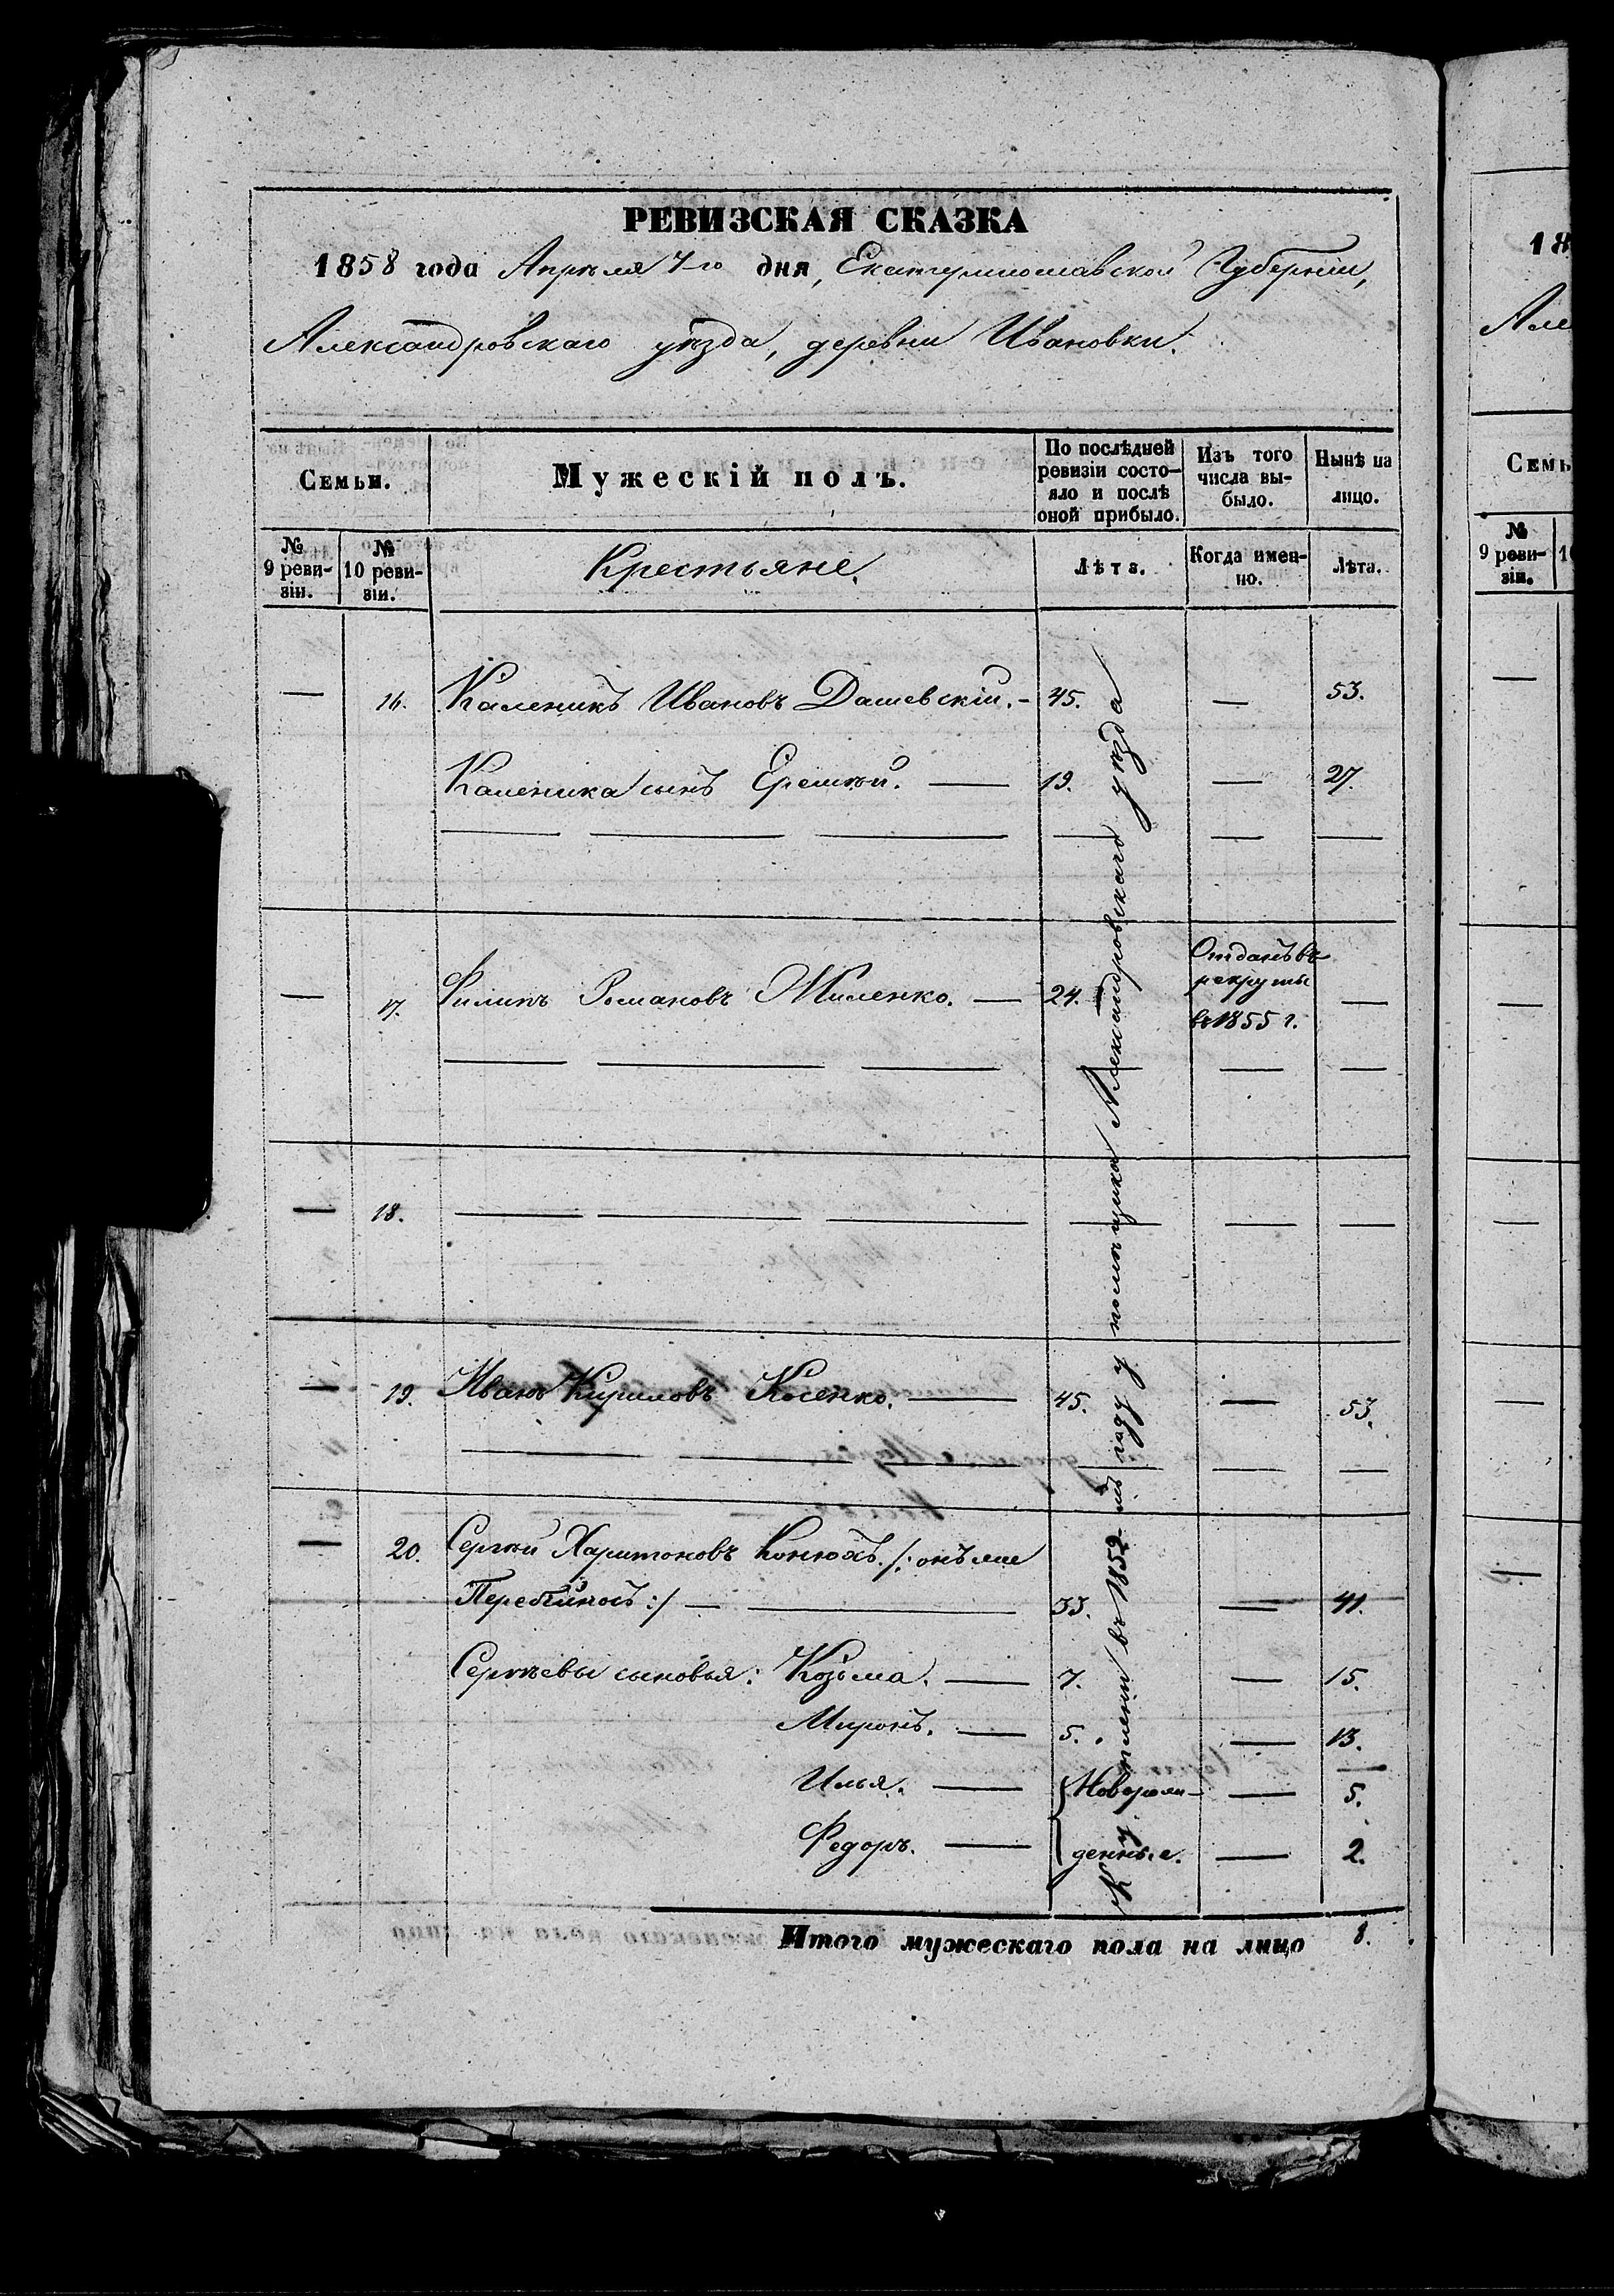 РЕВИЗСКАЯ СКАЗКА
1858 года Апрѣля 7го дня, Екатеринославской Губерніи,
Александровскаго уѣзда, деревни Ивановки.
Семьи.
Мужескій полъ.
По послѣдней ревизіи состо-
яло и послѣ оной прибыло.
Изъ того числа вы-
было.
Нынѣ на лицо.
№ 9 реви-
зіи.
№ 10 реви-
зіи.
Крестьяне.
Лѣта.
Когда имен-
но.
Лѣта.
— 16. Каленикъ Ивановъ Дашевскій. — 45. — 53.
Каленика сынъ Еремѣй. — 19. — 27.
— 17. Филипъ Романовъ Миленко. — 24. — Отданъ въ
рекруты
въ 1855 г. —
— 18. — — — — — —
— 19. Иванъ Кириловъ Косенко. — 45. — 53.
— 20. Сергѣй Харитоновъ Конюхъ. /: онъ же
Перебійносъ :/ — 33. — 41.
Сергѣевы сыновья: Козьма. — 7. — 15.
Миронъ. — 5. — 13.
Илья. — Новорож- — 5.
Федоръ. — денные. — 2.
Куплены въ 1852 мъ году у помѣщика Александровскаго уѣзда
Итого мужескаго пола на лицо 8.
18
Але
Семь
№ 9 реви-
зіи.
1